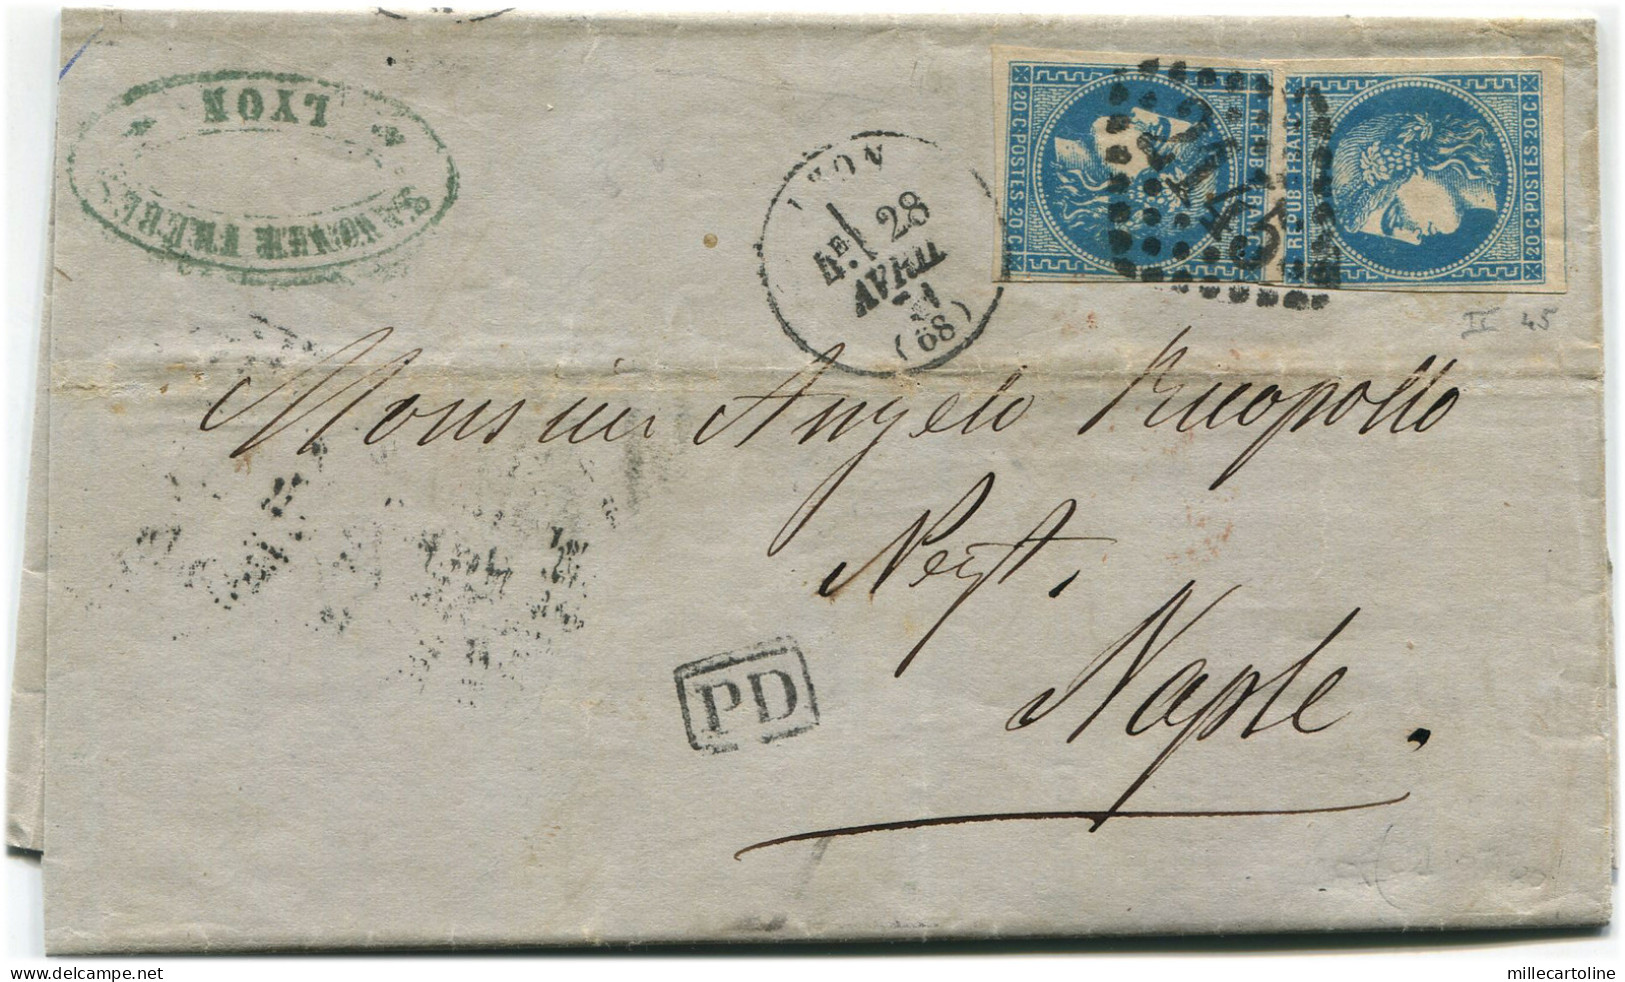 LYON
FRÈRES
LYON
4E
28
AVRIL
71
(68)
20 C·POSTES·20 C
REPUB·FRANC
20·C·POSTES·20·C
REPUB·FRANC
2145
II 45
Monsieur Angelo Ricopollo
Negt.
Naple.
PD
millecartoline